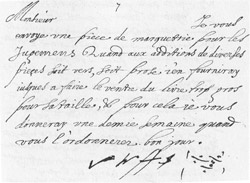 7
Monsieur
Je vous
envoye une pièce de marqueterie pour les
Jugemens Quant aux additions de diverses
pièces soit vers, soit prose, j'en fourniray
jusques a faire le vente du livre trop gros
pour sa taille, & pour cela je vous
donneray une demie semaine quand
vous l'ordonnerez bon jour.